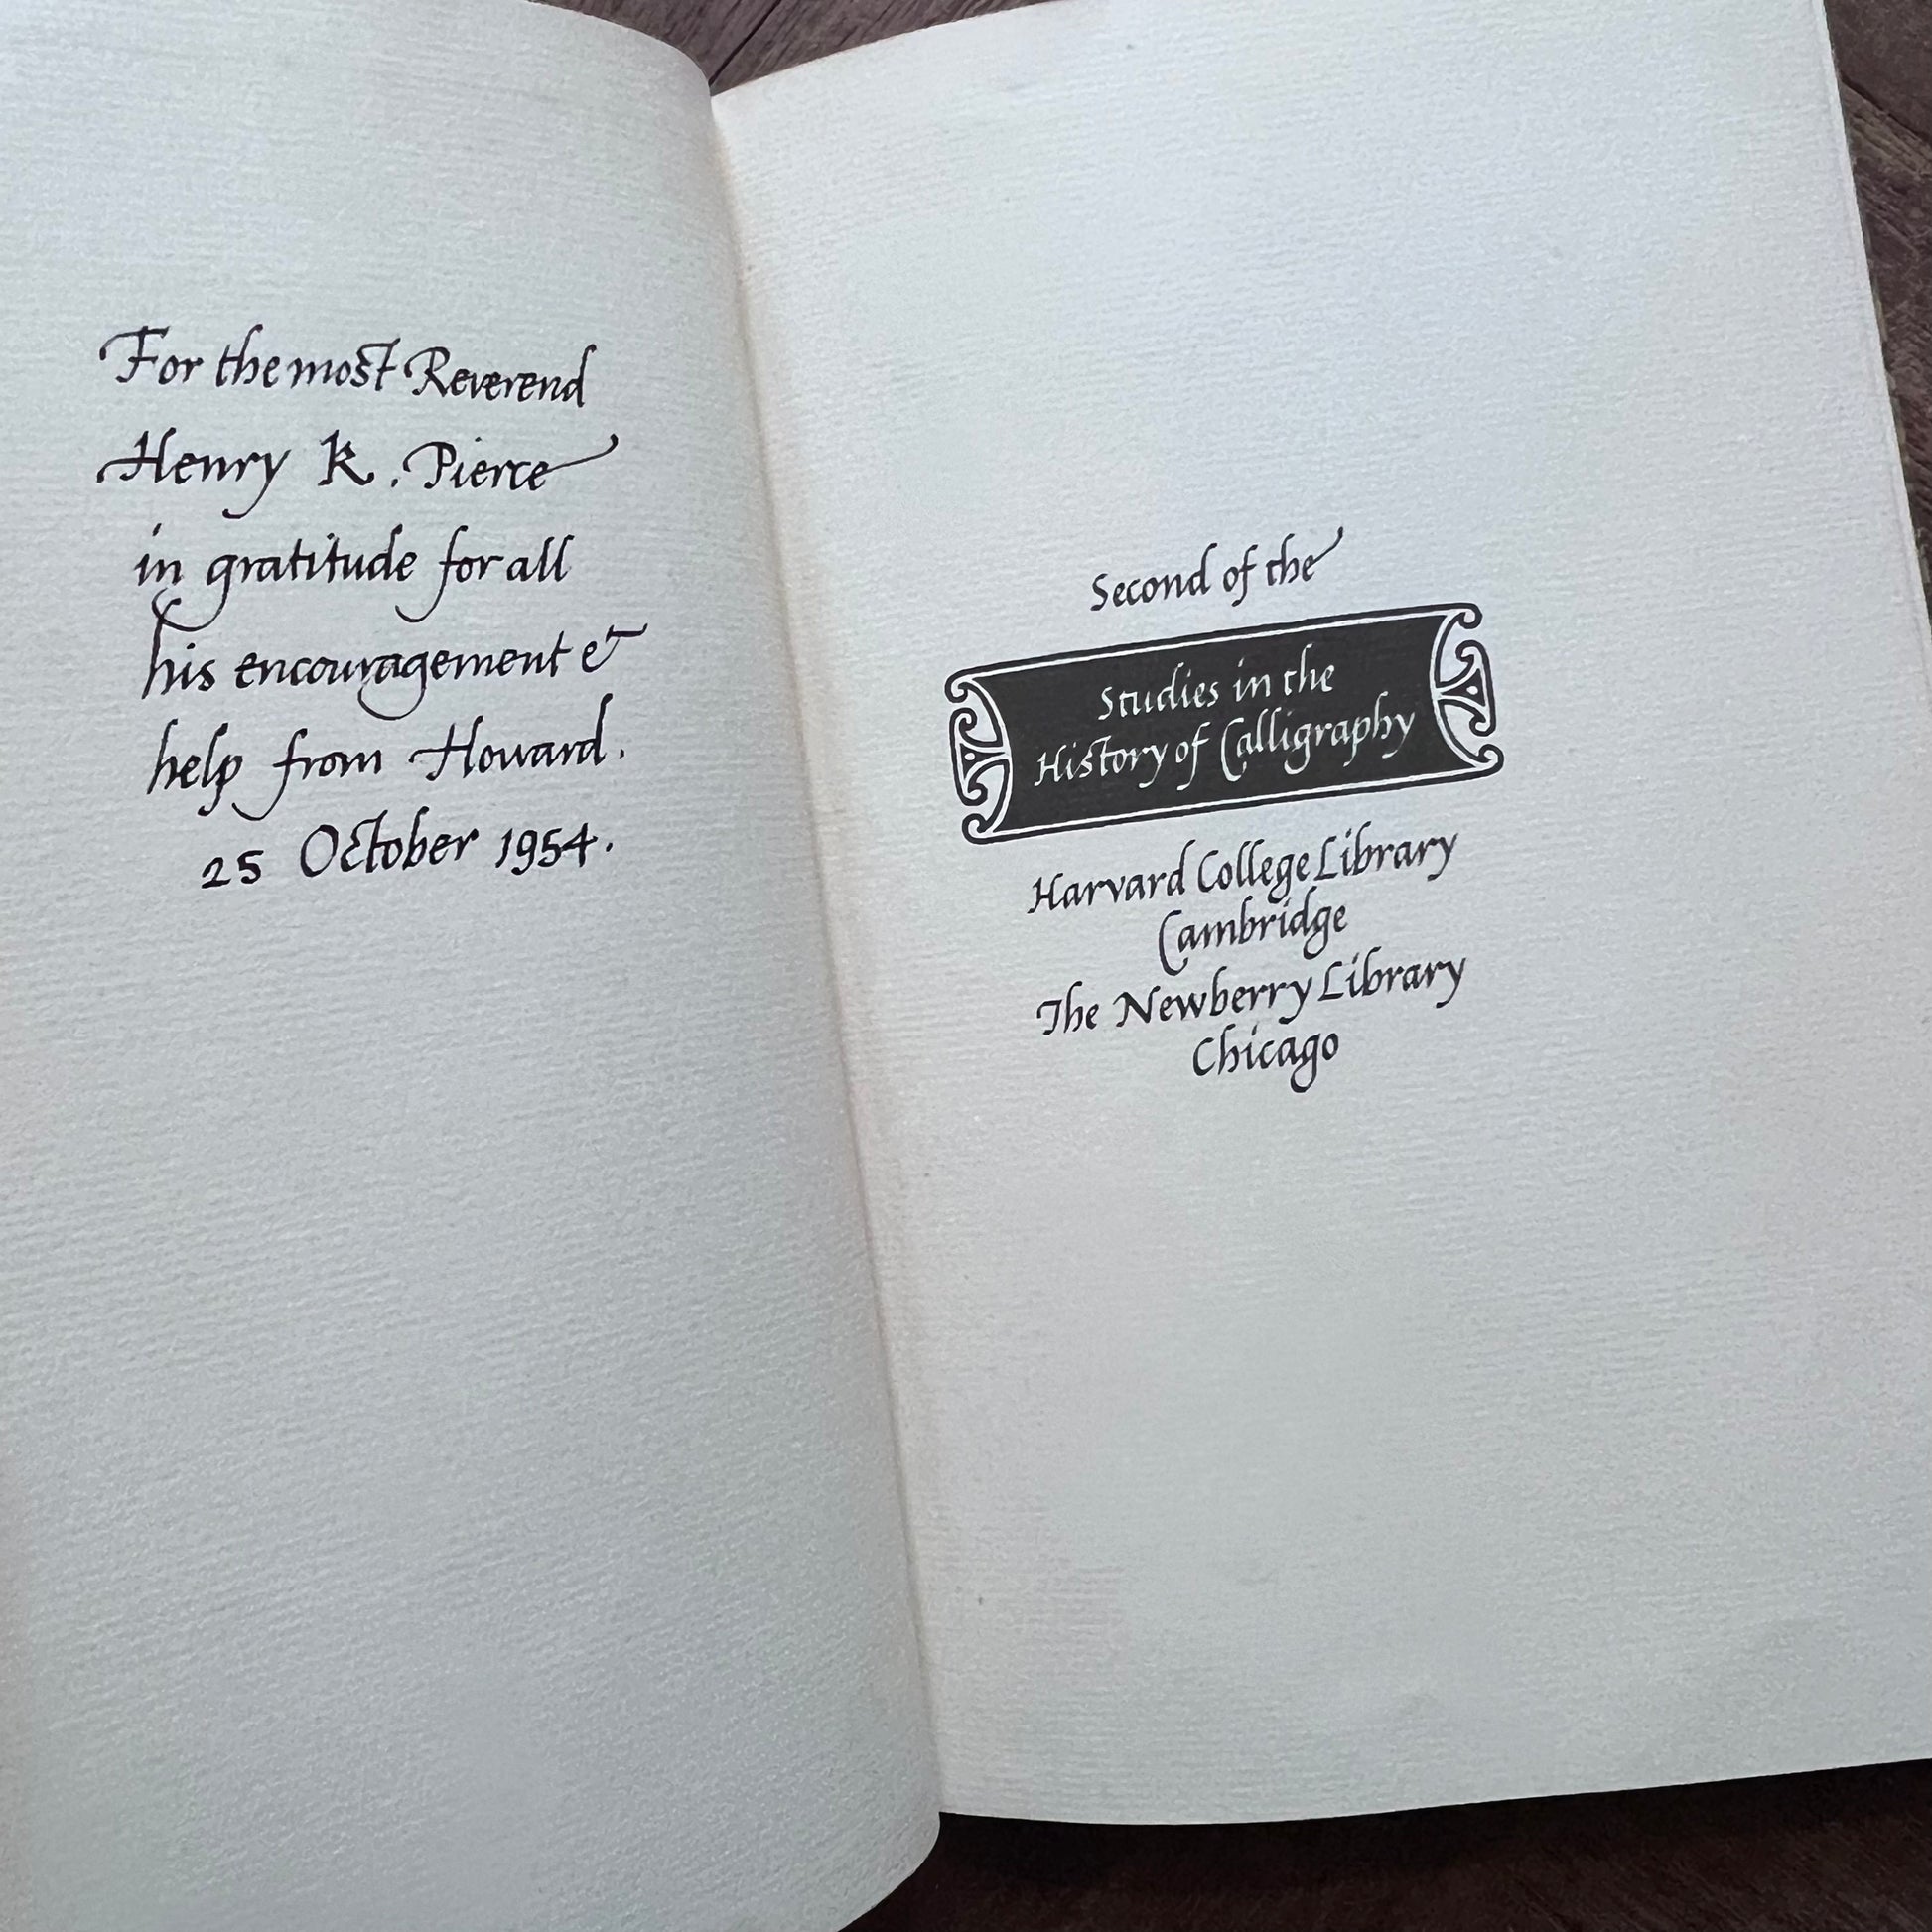 For the most Reverend
Henry K. Pierce
in gratitude for all
his encouragement &
help from Howard.
25 October 1954.
Second of the
Studies in the
History of Calligraphy
Harvard College Library
Cambridge
The Newberry Library
Chicago